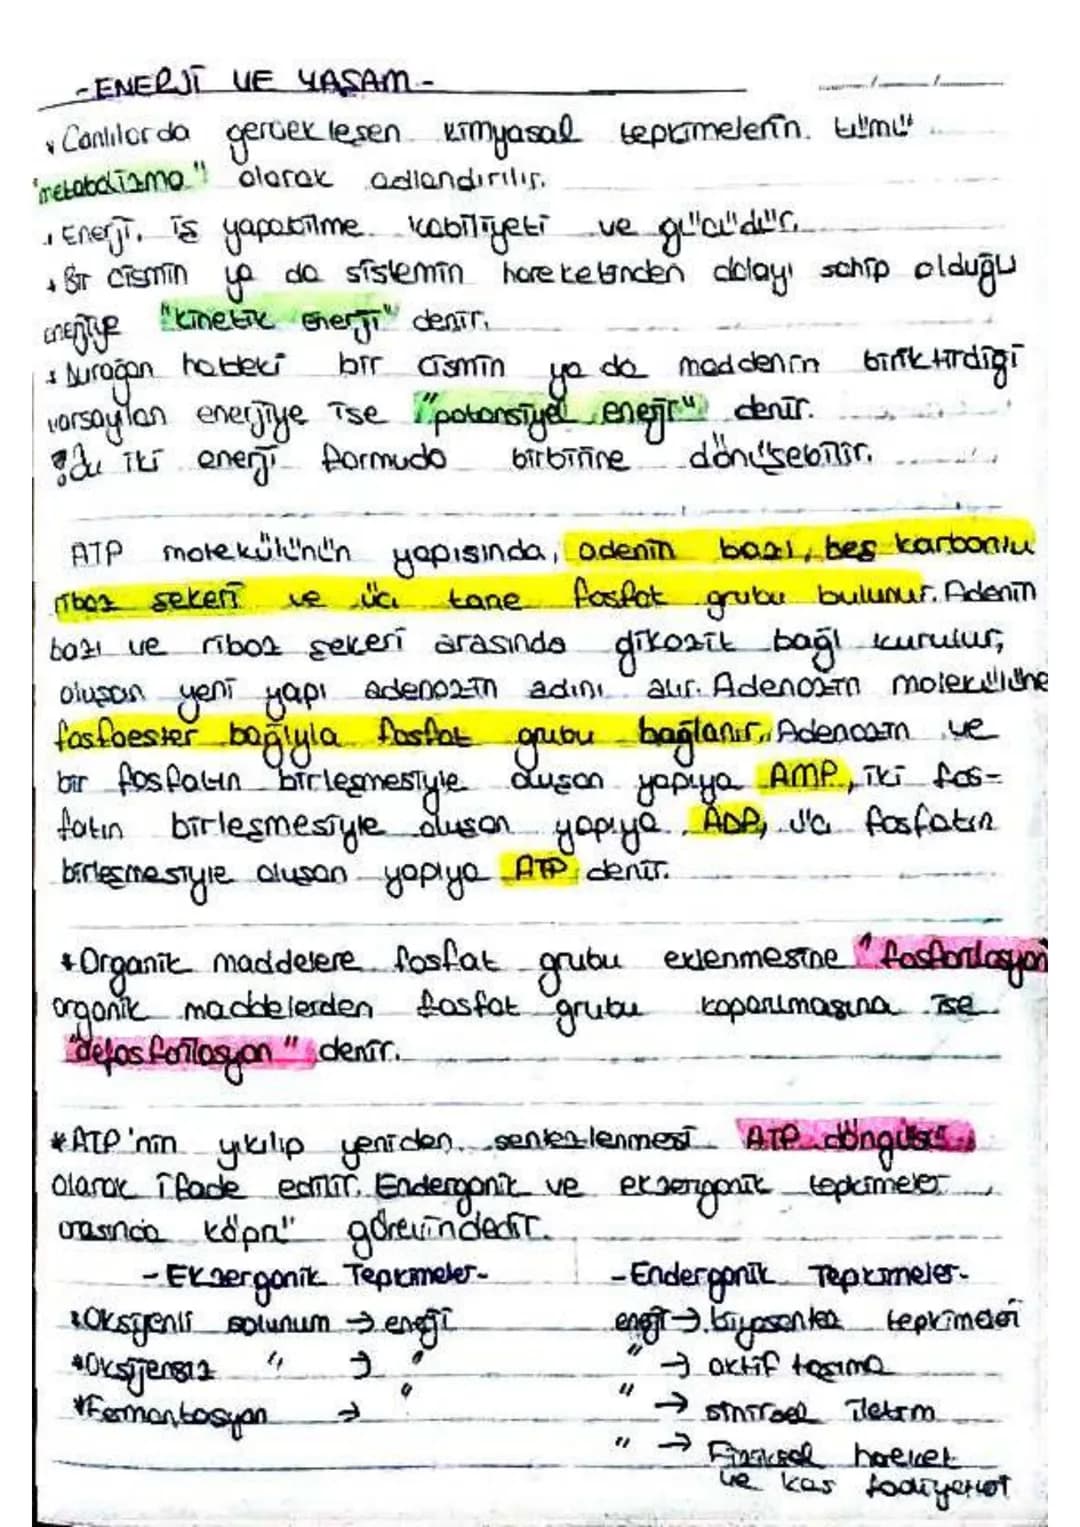 - ENERJİ VE YAŞAM -
* Canlılarda gerçekleşen kimyasal tepkimelerin tümü
"metabolizma" olarak adlandırılır.
* Enerji, iş yapabilme kabiliyeti ve gücüdür.
* Bir cismin ya da sistemin hareketinden dolayı sahip olduğu
enerjiye "kinetik enerji" denir.
* Durağan haldeki bir cismin ya da maddenin biriktirdiği
varsayılan enerjiye ise "potansiyel enerji" denir.
Bu iki enerji formuda birbirine dönüşebilir.
ATP molekülünün yapısında, adenin bazı, beş karbonlu
riboz şekeri ve üç tane fosfat grubu bulunur. Adenin
bazı ve riboz şekeri arasında glikozit bağı kurulur,
oluşan yeni yapı adenozin adını alır. Adenozin molekülüne
fosfoester bağıyla fosfat grubu bağlanır. Adenozin ve
bir fosfatın birleşmesiyle oluşan yapıya AMP, iki fos-
fatın birleşmesiyle oluşan yapıya ADP, üç fosfatın
birleşmesiyle oluşan yapıya ATP denir.
* Organik maddelere fosfat grubu eklenmesine "fosforilasyon
organik maddelerden fosfat grubu koparılmasına ise
"defosforilasyon" denir.
* ATP'nin yıkılıp yeniden sentezlenmesi ATP döngüsü
olarak ifade edilir. Endergonik ve ekzergonik tepkimeler
arasında köprü görevindedir.
- Ekzergonik Tepkimeler - - Endergonik Tepkimeler -
* Oksijenli solunum → enerji enerji → biyosentez tepkimeleri
* Oksijensiz " → " " → aktif taşıma
* Fermantasyon → " " → sinirsel iletim
" → Fiziksel hareket
ve kas faaliyetleri